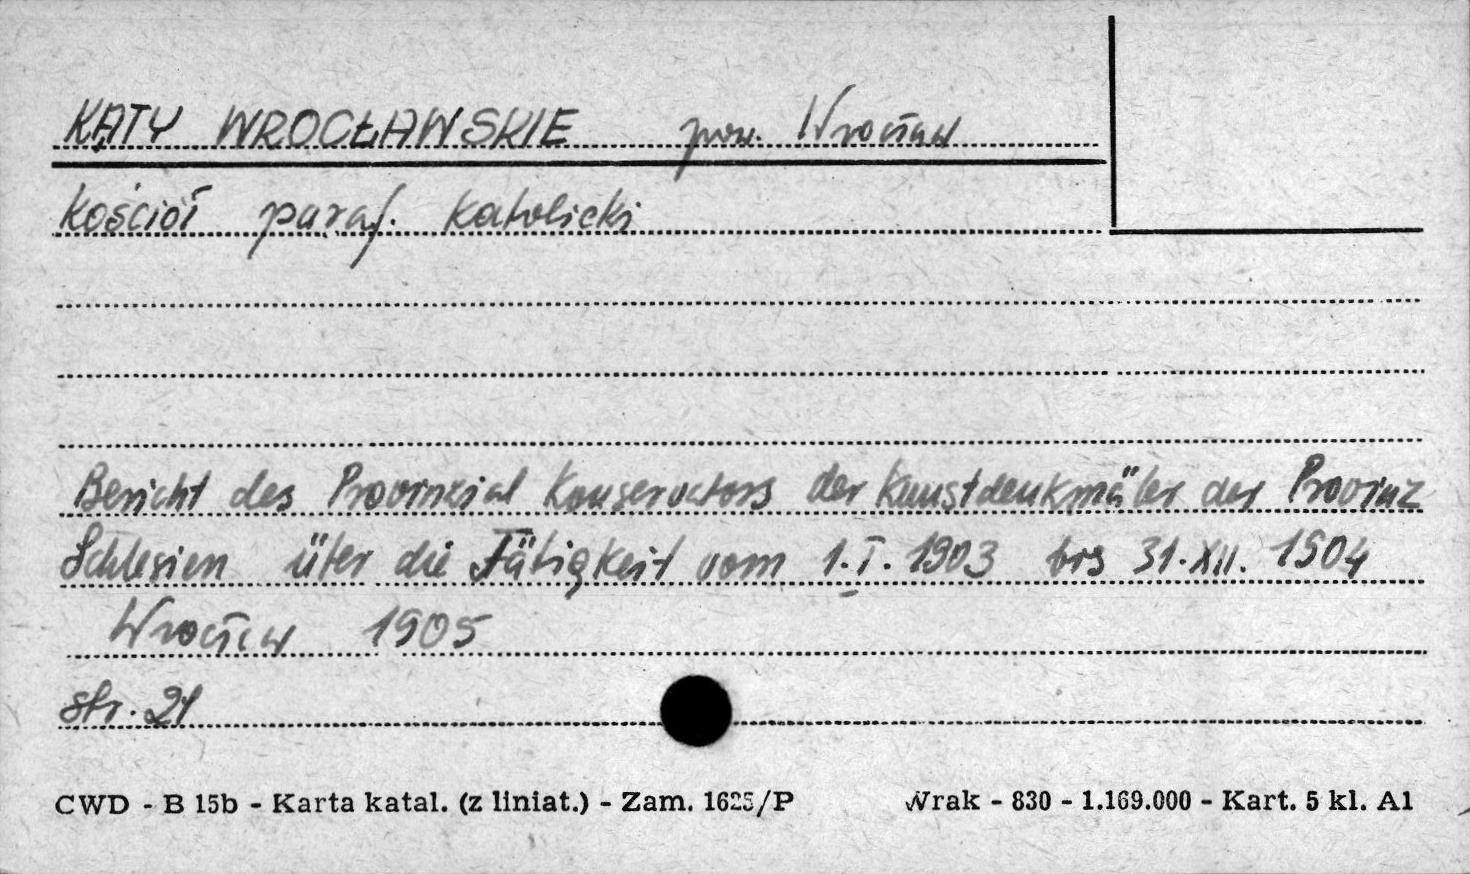 KĄTY WROCŁAWSKIE pow. Wrocław
Kościół paraf. katolicki
Bericht des Provinzial Konservators der Kunstdenkmäler der Provinz
Schlesien über die Tätigkeit vom 1.I.1903 bis 31.XII.1904
Wrocław 1905
str. 21
CWD - B 15b - Karta katal. (z liniat.) - Zam. 1625/P Wrak - 830 - 1.169.000 - Kart. 5 kl. A1